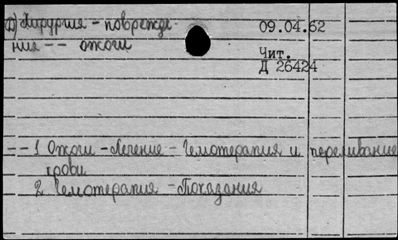 Д) Хирургия - поврежде- 09.04.62
ния -- ожоги
Чит.
Д 26424
-- 1 Ожоги - Лечение - Гемотерапия и переливание
крови
2 Гемотерапия - Показания